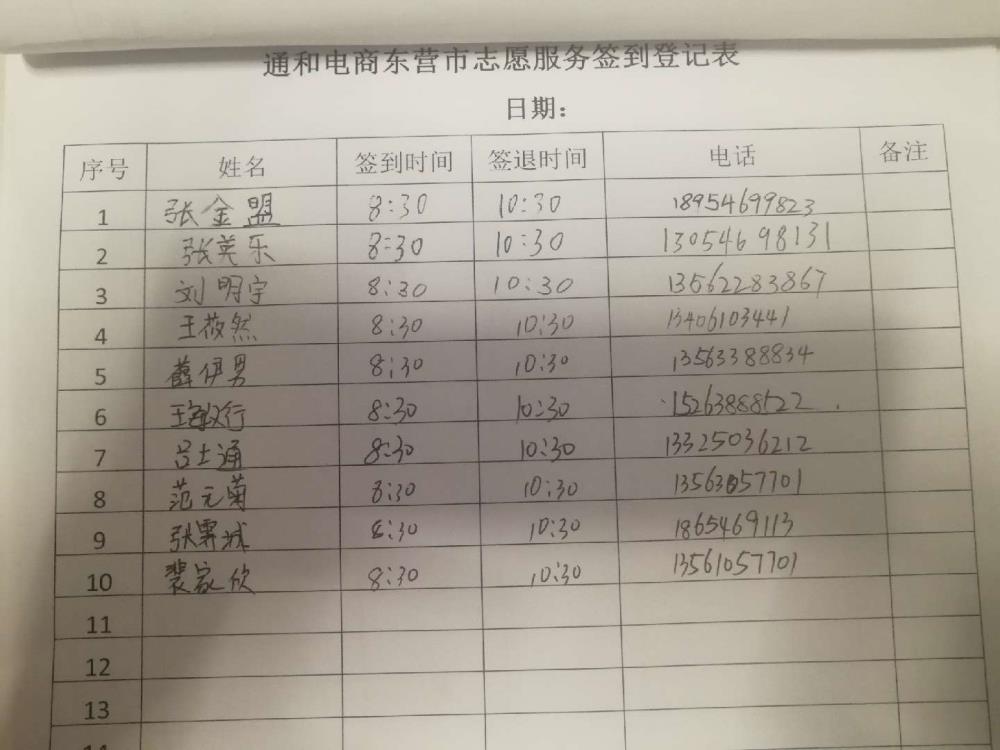 通和电商东营市志愿服务签到登记表
日期：
序号 姓名 签到时间 签退时间 电话 备注
1 张金盟 8:30 10:30 18954699823
2 张英乐 8:30 10:30 13054698131
3 刘明宇 8:30 10:30 13562283867
4 王筱然 8:30 10:30 13406103441
5 薛伊男 8:30 10:30 13563388834
6 8:30 10:30 15263888522
7 吕士通 8:30 10:30 13325036212
8 范元菊 8:30 10:30
9 张霁城 8:30 10:30 1865469113
10 裴家欣 8:30 10:30 13561057701
11
12
13